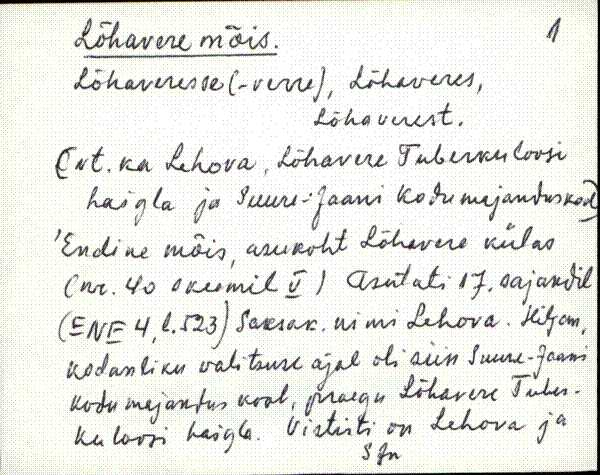 1
Lõhavere mõis.
Lõhaveresse (-verre), Lõhaveres,
Lõhaverest.
(vt. ka Lehova, Lõhavere Tuberkuloosi
haigla ja Suure-Jaani Kodumajanduskool)
'Endine mõis, asukoht Lõhavere külas
(nr. 40 skeemil V) Asutati 17. sajandil
(ENE 4, l. 523) Saksak. nimi Lehova. Hiljem,
kodanliku valitsuse ajal oli siin Suure-Jaani
kodumajandus kool, praegu Lõhavere Tuber-
kuloosi haigla. Vististi on Lehova ja
SJn